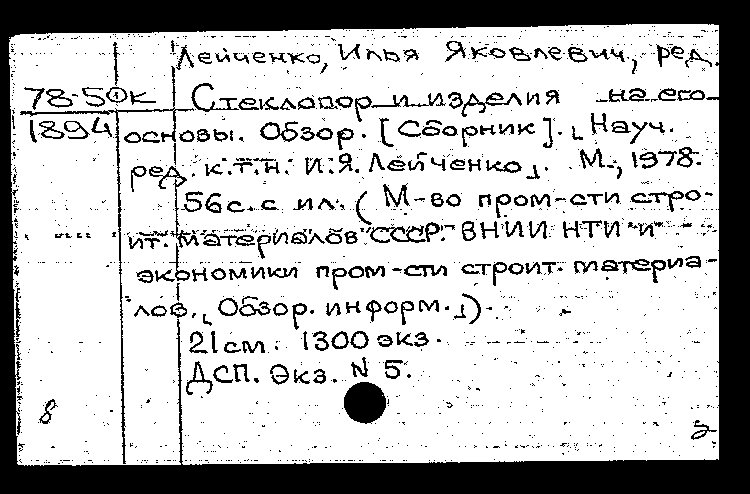 Лейченко, Илья Яковлевич, ред.
78-5 к
1894
Стеклопор и изделия на его
основы. Обзор. [Сборник]. Науч.
ред. к.т.н. И.Я. Лейченко. М., 1978.
56с. с ил. (М-во пром-сти стро-
ит. материалов СССР. ВНИИ НТИ и
экономики пром-сти строит. материа-
лов. Обзор. информ.).
21см. 1300 экз.
ДСП. Экз. N 5.
8